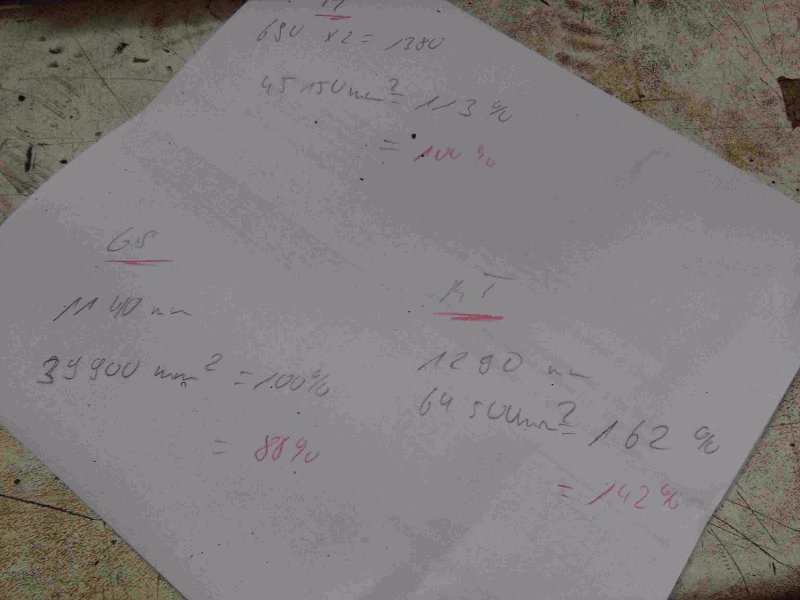 690 x2 = 1380
45 150 mm² = 113 %
= 100 %
GS
1140 mm
39 900 mm² = 100%
= 88%
KT
1290 mm
64 500 mm² = 162 %
= 142 %